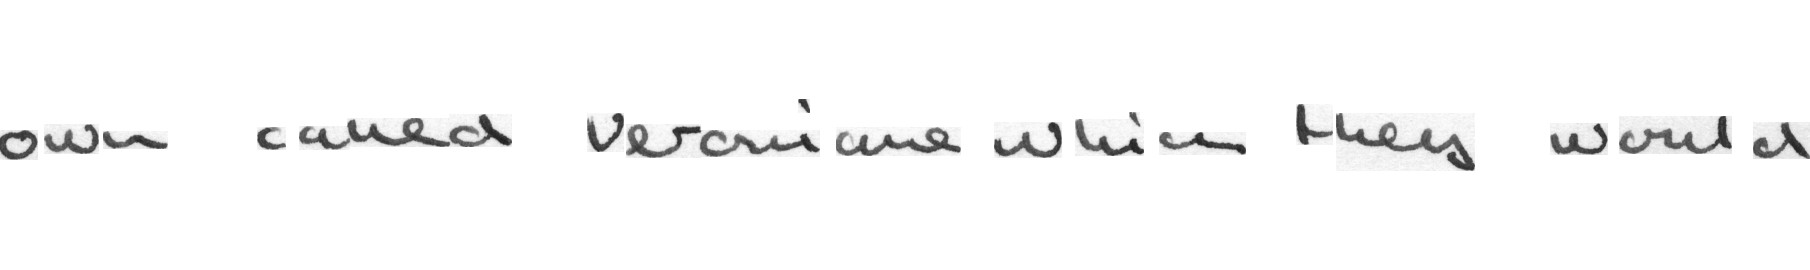 own called Veroniane which they would